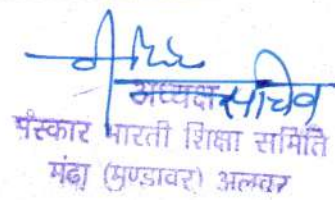 अध्यक्ष सचिव
संस्कार भारती शिक्षा समिति
मंढा (मुण्डावर) अलवर